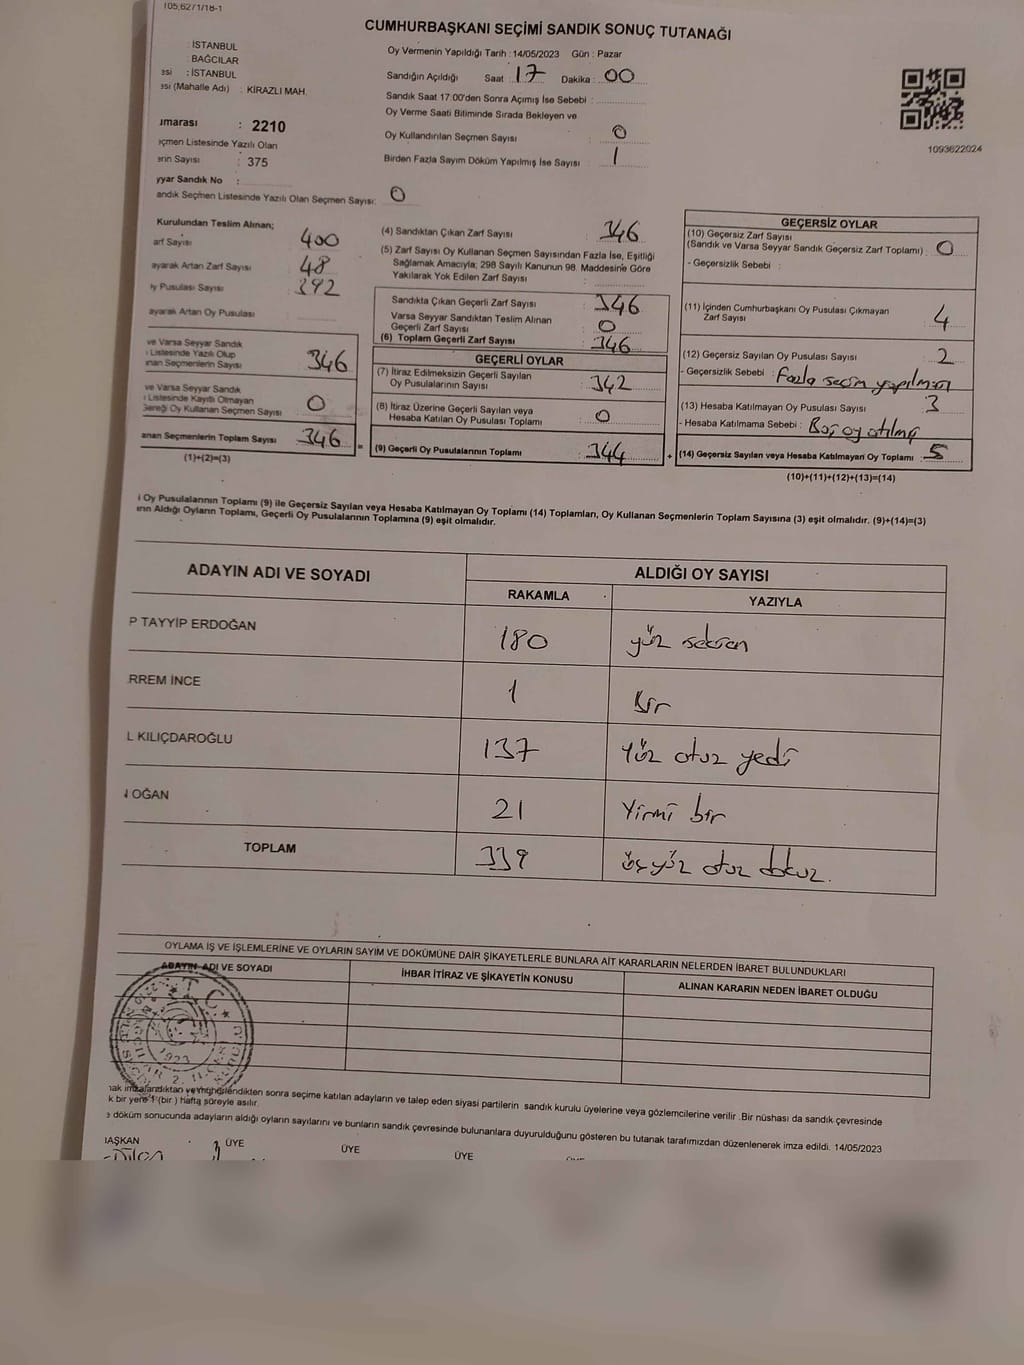 105,6271/18-1
CUMHURBAŞKANI SEÇİMİ SANDIK SONUÇ TUTANAĞI
: İSTANBUL
: BAĞCILAR
esi : İSTANBUL
esi (Mahalle Adı) : KİRAZLI MAH.
ımarası : 2210
içmen Listesinde Yazılı Olan
erin Sayısı : 375
yyar Sandık No :
andık Seçmen Listesinde Yazılı Olan Seçmen Sayısı: 0
Oy Vermenin Yapıldığı Tarih : 14/05/2023 Gün : Pazar
Sandığın Açıldığı Saat : 17 Dakika : 00
Sandık Saat 17:00'den Sonra Açımış İse Sebebi :
Oy Verme Saati Bitiminde Sırada Bekleyen ve
Oy Kullandırılan Seçmen Sayısı : 0
Birden Fazla Sayım Döküm Yapılmış İse Sayısı : 1
1093622024
Kurulundan Teslim Alınan;
arf Sayısı : 400
ayarak Artan Zarf Sayısı : 48
ıy Pusulası Sayısı : 392
ayarak Artan Oy Pusulası :
ve Varsa Seyyar Sandık
ı Listesinde Yazılı Olup
ınan Seçmenlerin Sayısı : 346
ve Varsa Seyyar Sandık
ı Listesinde Kayıtlı Olmayan
Gereği Oy Kullanan Seçmen Sayısı : 0
anan Seçmenlerin Toplam Sayısı : 346 =
(1)+(2)=(3)
(4) Sandıktan Çıkan Zarf Sayısı : 346
(5) Zarf Sayısı Oy Kullanan Seçmen Sayısından Fazla İse, Eşitliği
Sağlamak Amacıyla; 298 Sayılı Kanunun 98. Maddesine Göre
Yakılarak Yok Edilen Zarf Sayısı :
Sandıkta Çıkan Geçerli Zarf Sayısı : 346
Varsa Seyyar Sandıktan Teslim Alınan
Geçerli Zarf Sayısı : 0
(6) Toplam Geçerli Zarf Sayısı : 346
GEÇERLİ OYLAR
(7) İtiraz Edilmeksizin Geçerli Sayılan
Oy Pusulalarının Sayısı : 342
(8) İtiraz Üzerine Geçerli Sayılan veya
Hesaba Katılan Oy Pusulası Toplamı : 0
(9) Geçerli Oy Pusulalarının Toplamı : 344 +
GEÇERSİZ OYLAR
(10) Geçersiz Zarf Sayısı
(Sandık ve Varsa Seyyar Sandık Geçersiz Zarf Toplamı) : 0
- Geçersizlik Sebebi :
(11) İçinden Cumhurbaşkanı Oy Pusulası Çıkmayan
Zarf Sayısı : 4
(12) Geçersiz Sayılan Oy Pusulası Sayısı : 2
- Geçersizlik Sebebi : Fazla seçim yapılması
(13) Hesaba Katılmayan Oy Pusulası Sayısı : 3
- Hesaba Katılmama Sebebi : Boş oy atılmış
(14) Geçersiz Sayılan veya Hesaba Katılmayan Oy Toplamı : 5
(10)+(11)+(12)+(13)=(14)
i Oy Pusulalarının Toplamı (9) ile Geçersiz Sayılan veya Hesaba Katılmayan Oy Toplamı (14) Toplamları, Oy Kullanan Seçmenlerin Toplam Sayısına (3) eşit olmalıdır. (9)+(14)=(3)
ırın Aldığı Oyların Toplamı, Geçerli Oy Pusulalarının Toplamına (9) eşit olmalıdır.
ADAYIN ADI VE SOYADI ALDIĞI OY SAYISI
RAKAMLA YAZIYLA
P TAYYİP ERDOĞAN 180 yüz seksen
RREM İNCE 1 Bir
L KILIÇDAROĞLU 137 Yüz otuz yedi
OĞAN 21 Yirmi bir
TOPLAM 339 üçyüz otuz dokuz.
OYLAMA İŞ VE İŞLEMLERİNE VE OYLARIN SAYIM VE DÖKÜMÜNE DAİR ŞİKAYETLERLE BUNLARA AİT KARARLARIN NELERDEN İBARET BULUNDUKLARI
ADAYIN ADI VE SOYADI İHBAR İTİRAZ VE ŞİKAYETİN KONUSU ALINAN KARARIN NEDEN İBARET OLDUĞU
T.C.
1923
nak imzalandıktan ve mühürlendikten sonra seçime katılan adayların ve talep eden siyasi partilerin sandık kurulu üyelerine veya gözlemcilerine verilir .Bir nüshası da sandık çevresinde
k bir yere 1 (bir ) hafta süreyle asılır.
e döküm sonucunda adayların aldığı oyların sayılarını ve bunların sandık çevresinde bulunanlara duyurulduğunu gösteren bu tutanak tarafımızdan düzenlenerek imza edildi. 14/05/2023
BAŞKAN ÜYE ÜYE ÜYE